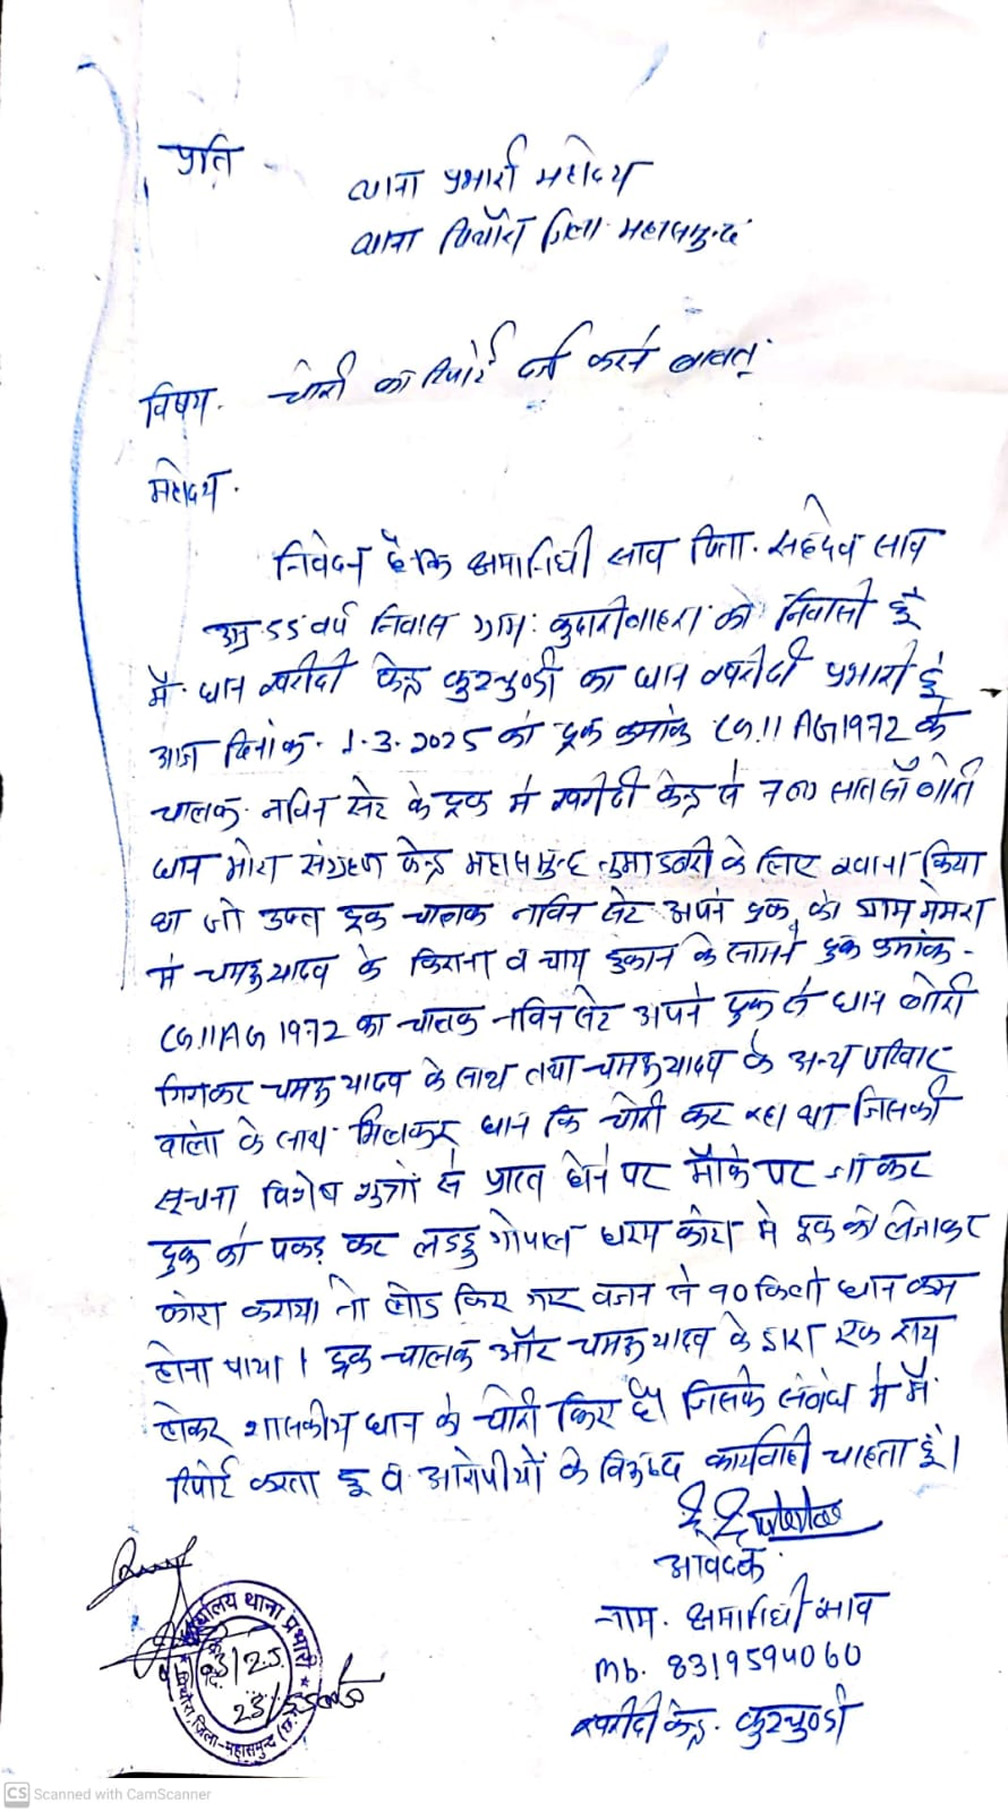 प्रति
थाना प्रभारी महोदय
थाना पिथौरा जिला महासमुन्द
विषय. चोरी का रिपोर्ट दर्ज करने बाबत्
महोदय.
निवेदन है कि क्षमानिधी साव पिता. सहदेव साव
उम्र 55 वर्ष निवास ग्राम: कुदारीबाहरा का निवासी हूँ
मैं. धान खरीदी केन्द्र कुरचुण्डी का धान खरीदी प्रभारी हूं
आज दिनांक. 1.3.2025 को ट्रक क्रमांक CG.11 AG1972 के
चालक. नविन सेट के ट्रक में खरीदी केन्द्र से 700 सात सौ बोरी
धान मोटा संग्रहण केन्द्र महासमुन्द तुमाडबरी के लिए रवाना किया
था जो उक्त ट्रक चालक नविन सेट अपने ट्रक को ग्राम गेमरा
में चमरु यादव के किराना व चाय दुकान के सामने ट्रक क्रमांक-
CG.11AG 1972 का चालक नविन सेट अपने ट्रक से धान बोरी
गिराकर चमरु यादव के साथ तथा चमरु यादव के अन्य परिवार
वालो के साथ मिलकर धान कि चोरी कर रहा था जिसकी
सूचना विशेष सुत्रों से प्राप्त होने पर मौके पर जाकर
ट्रक को पकड़ कर लडडु गोपाल धरम कांटा मे ट्रक को लेजाकर
कांटा कराया तो लोड किए गए वजन से 90 किलो धान कम
होना पाया। ट्रक चालक और चमरु यादव के द्वारा एक राय
होकर शासकीय धान को चोरी किए है। जिसके संबंध मे मैं
रिपोर्ट करता हू व आरोपीयों के विरुध्द कार्यवाही चाहता हूं।
आवेदक
नाम. क्षमानिधी साव
mb. 8319594060
खरीदी केन्द्र. कुरचुण्डी
कार्यालय थाना प्रभारी
पिथौरा, जिला-महासमुन्द (छ.ग.)
CS Scanned with CamScanner